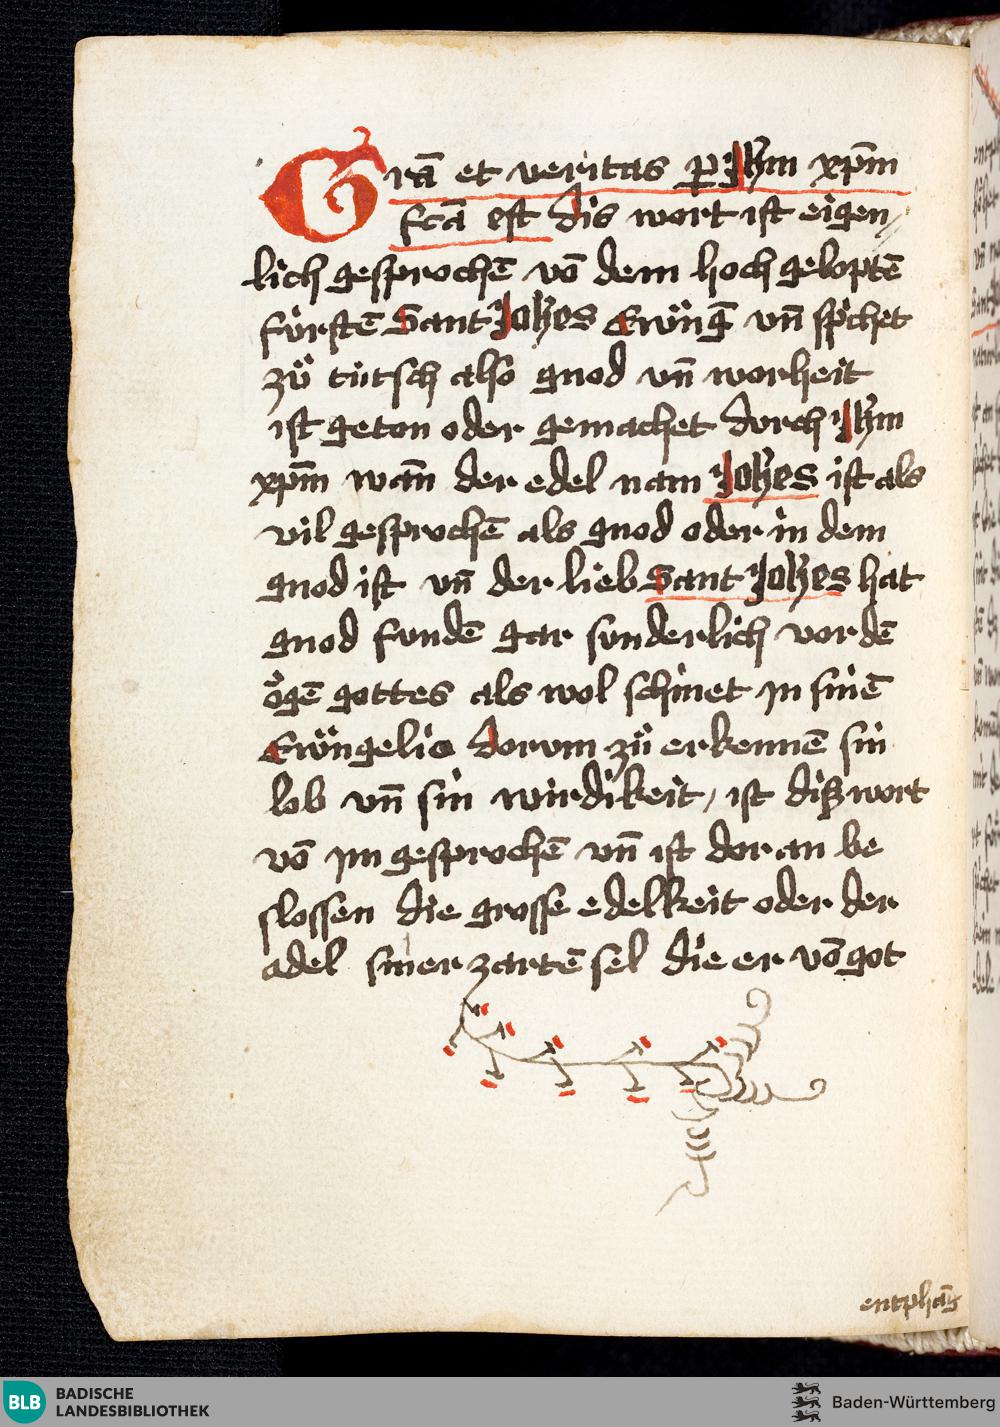 Grā et veritas ꝑ Jhm xp̄m
fcā est dis wort ist eigen
lich gesprochē vō dem hoch geloptē
fürstē Sant Johes Ewōnḡ vn̄ sp̄chet
zů tütsch also gnod vn̄ worheit
ist geton oder gemachet dorch Jhm
xp̄m wān der edel nam Johes ist als
vil gesprochē als gnod oder in dem
gnod ist vn̄ der lieb Sant Johes hat
gnod fundē gar sunderlich vor dē
ögē gottes als wol schinet in sinē
Ewöngelio dorum zů erkennē sin
lob vn̄ sin wirdikeit, ist diß wort
vō im gesprochē vn̄ ist dor an be
slossen die grosse edelkeit oder der
adel siner zartē sel die er vō got
entphāg
BLB BADISCHE
LANDESBIBLIOTHEK
Baden-Württemberg